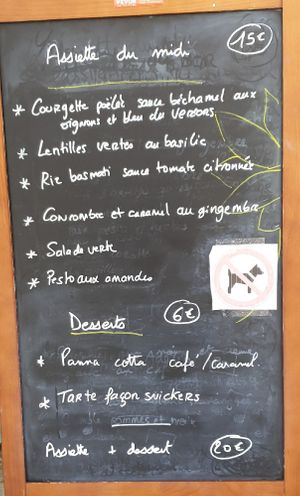 Assiette du midi 15€
* Courgette poëlée sauce béchamel aux
oignons et bleu du Vercors
* Lentilles vertes au basilic
* Riz basmati sauce tomate citronnée
* Concombre et caramel au gingembre
* Salade verte
* Pesto aux amandes
Desserts 6€
* Panna cotta café/caramel
* Tarte façon snickers
Assiette + dessert 20€